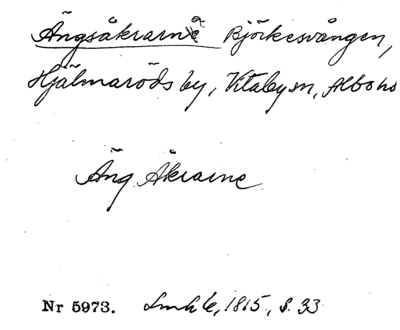 Ängsåkrarnå Björkesvången,
Hjälmaröds by, Vitaby sn, Albo hd
Äng Åkrarne
Nr 5973. Lmh 6, 1815, s. 33